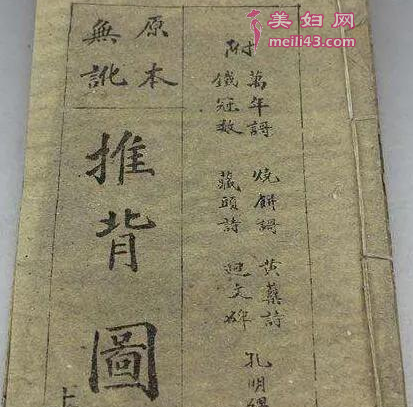 美妇网
meili43.com
附
萬年謌 燒餅謌 黄蘗詩 孔明
鐵冠數 藏頭詩 迴文碑
原本
無訛
推背圖
上